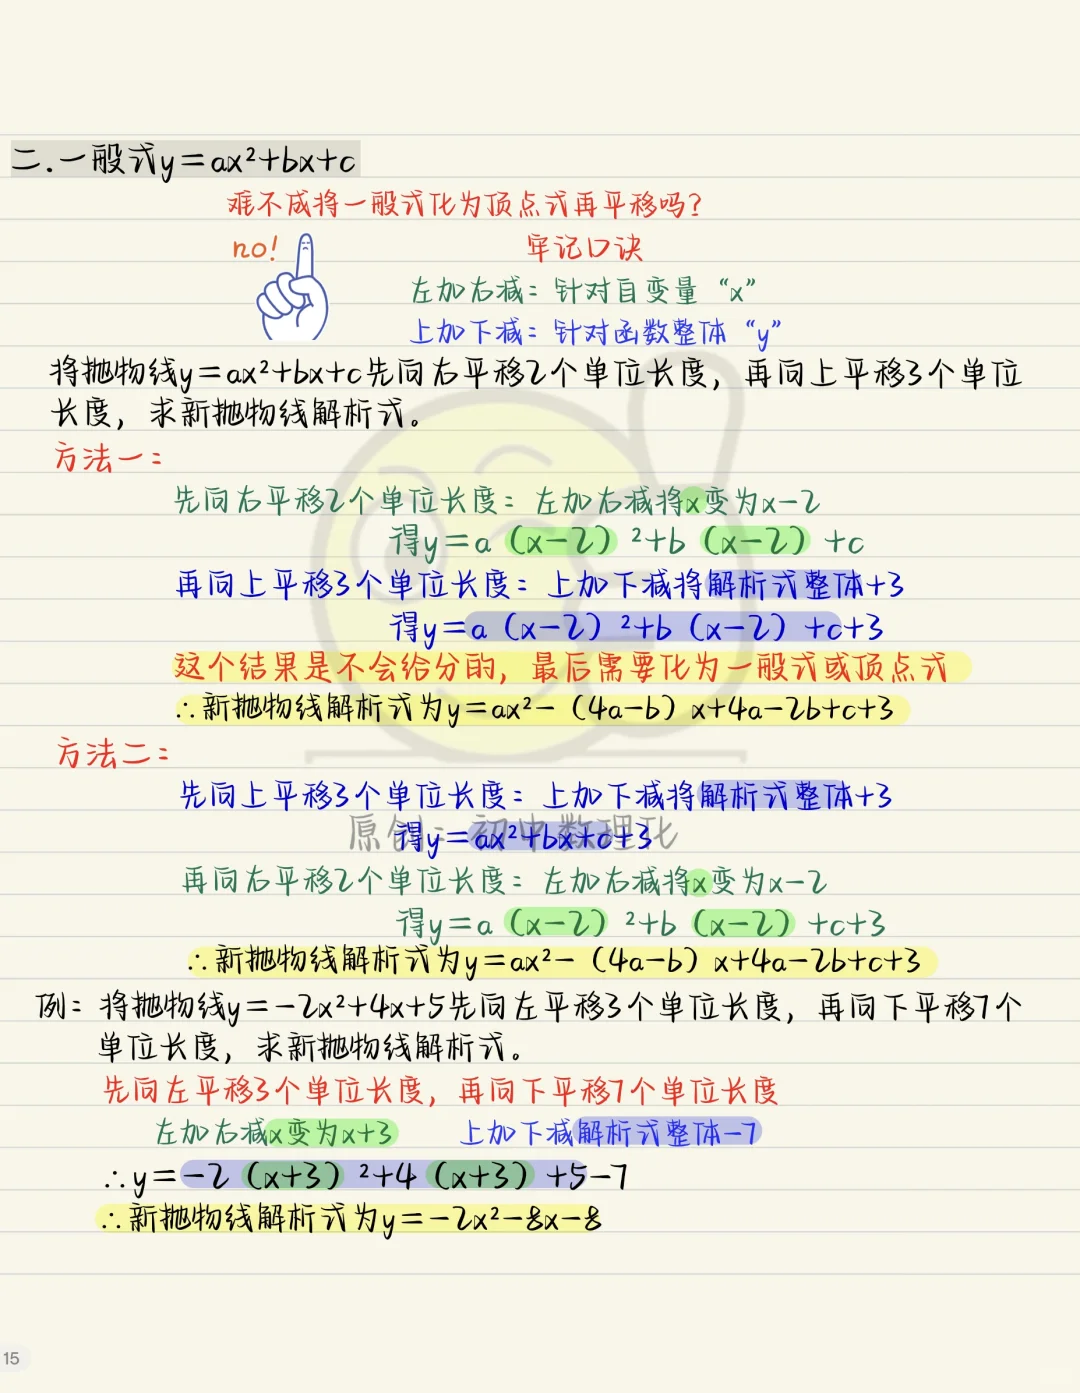 二.一般式y=ax²+bx+c
难不成将一般式化为顶点式再平移吗?
no!
牢记口诀
左加右减: 针对自变量 “x”
上加下减: 针对函数整体 “y”
将抛物线y=ax²+bx+c先向右平移2个单位长度, 再向上平移3个单位
长度, 求新抛物线解析式。
方法一:
先向右平移2个单位长度: 左加右减将x变为x-2
得y=a (x-2) ²+b (x-2) +c
再向上平移3个单位长度: 上加下减将解析式整体+3
得y=a (x-2) ²+b (x-2) +c+3
这个结果是不会给分的, 最后需要化为一般式或顶点式
∴新抛物线解析式为y=ax²- (4a-b) x+4a-2b+c+3
方法二:
先向上平移3个单位长度: 上加下减将解析式整体+3
原创: 初中数理化
得y=ax²+bx+c+3
再向右平移2个单位长度: 左加右减将x变为x-2
得y=a (x-2) ²+b (x-2) +c+3
∴新抛物线解析式为y=ax²- (4a-b) x+4a-2b+c+3
例: 将抛物线y=-2x²+4x+5先向左平移3个单位长度, 再向下平移7个
单位长度, 求新抛物线解析式。
先向左平移3个单位长度, 再向下平移7个单位长度
左加右减x变为x+3 上加下减解析式整体-7
∴y=-2 (x+3) ²+4 (x+3) +5-7
∴新抛物线解析式为y=-2x²-8x-8
15